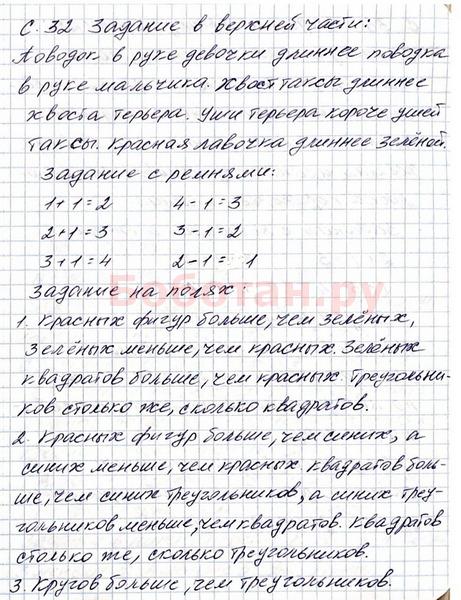 С. 32 Задание в верхней части:
Поводок в руке девочки длиннее поводка
в руке мальчика. Хвост таксы длиннее
хвоста терьера. Уши терьера короче ушей
таксы. Красная лавочка длиннее зелёной.
Задание с ремнями:
1+1=2 4-1=3
2+1=3 3-1=2
3+1=4 2-1= 1
Боботан.ру
Задание на полях:
1. Красных фигур больше, чем зелёных,
Зелёных меньше, чем красных. Зелёных
квадратов больше, чем красных. Треугольни-
ков столько же, сколько квадратов.
2. Красных фигур больше, чем синих, а
синих меньше, чем красных. Квадратов боль-
ше, чем синих треугольников, а синих треу-
гольников меньше, чем квадратов. Квадратов
столько же, сколько треугольников.
3. Кругов больше, чем треугольников.